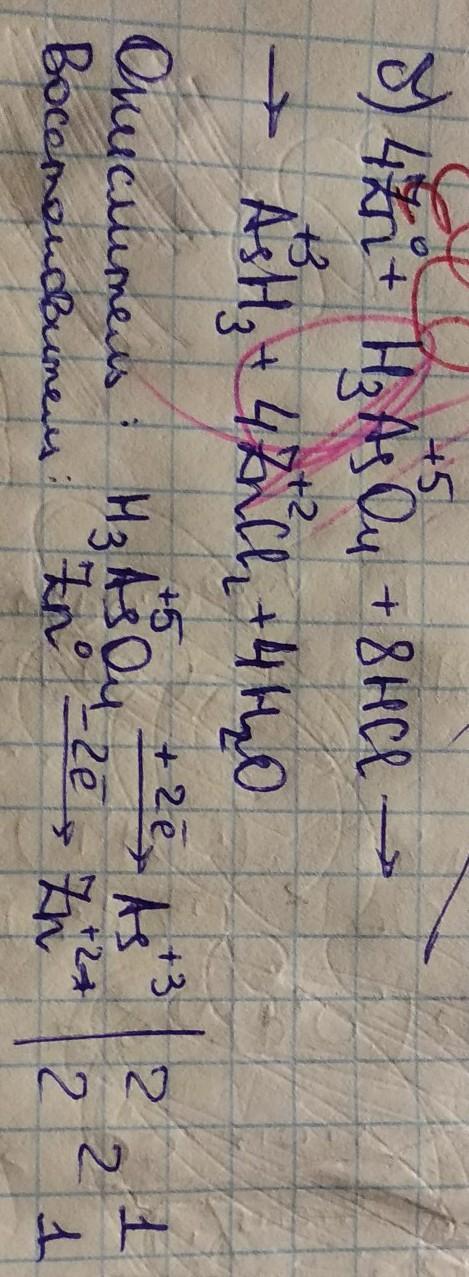 б) 4Zn⁰ + H₃As⁺⁵O₄ + 8HCl →
→ As⁺³H₃ + 4Zn⁺²Cl₂ + 4H₂O
Окислитель: H₃As⁺⁵O₄ +2ē → As⁺³ | 2 1
2
Восстановитель: Zn⁰ -2ē → Zn⁺² | 2 1